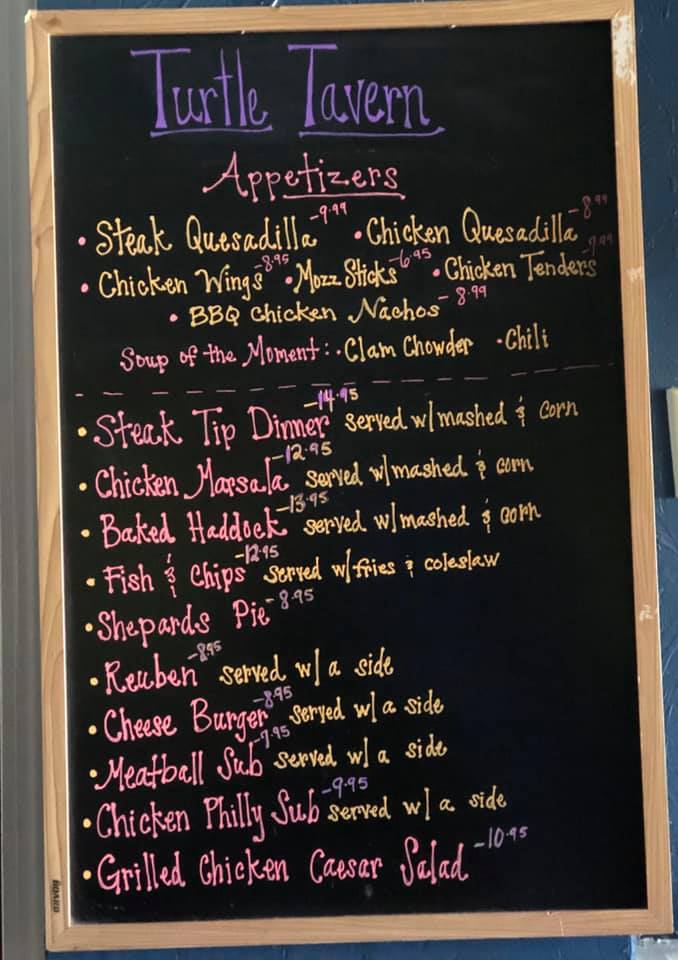 Turtle Tavern
Appetizers
• Steak Quesadilla -9.99 • Chicken Quesadilla -8.99
• Chicken Wings -8.95 • Mozz Sticks -6.95 • Chicken Tenders
• BBQ Chicken Nachos -8.99
Soup of the Moment: • Clam Chowder • Chili
• Steak Tip Dinner -14.95 served w/mashed & corn
• Chicken Marsala -12.95 served w/mashed & corn
• Baked Haddock -13.95 served w/mashed & corn
• Fish & Chips -12.95 served w/fries & coleslaw
• Shepards Pie -8.95
• Reuben -8.95 served w/ a side
• Cheese Burger -8.95 served w/ a side
• Meatball Sub -7.95 served w/ a side
• Chicken Philly Sub -9.95 served w/ a side
• Grilled Chicken Caesar Salad -10.95